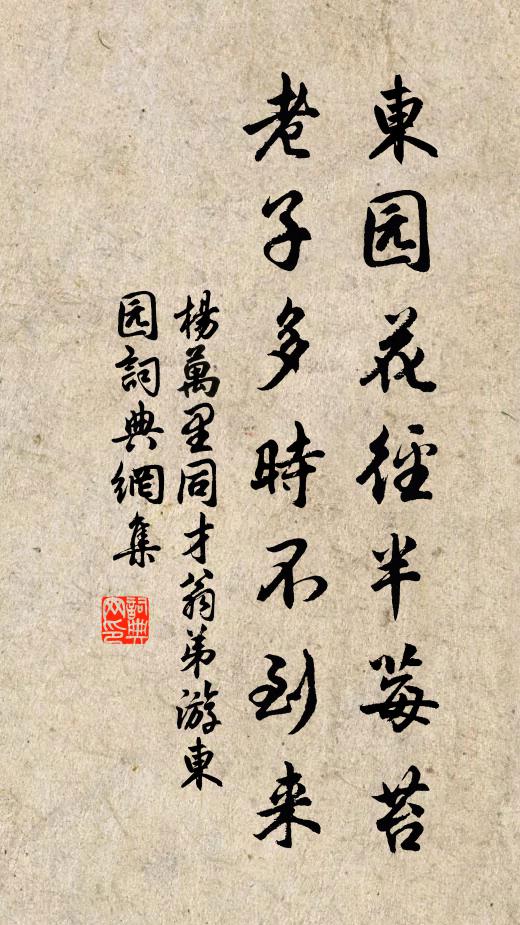 東园花径半莓苔
老子多時不到来
楊萬里同才翁弟游東
园詞典網集
詞典
网印